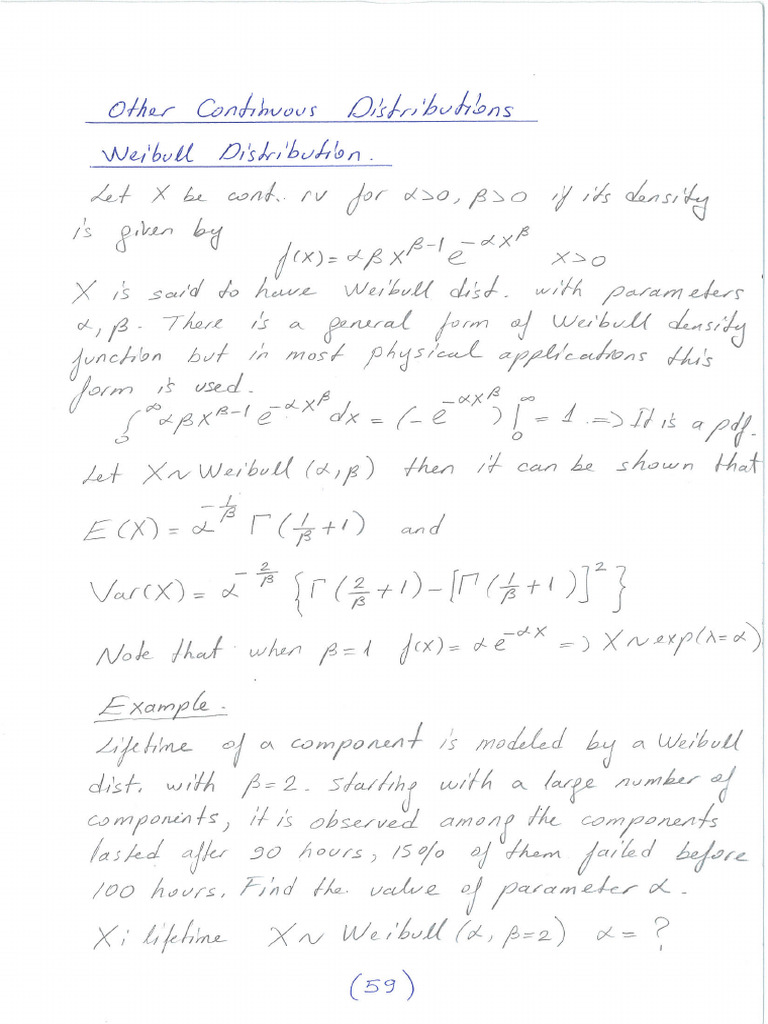 Other Continuous Distributions
Weibull Distribution.
Let X be cont. rv for α>0, β>0 if its density
is given by
f(x) = αβ x^{β-1} e^{-αx^β}   x>0
X is said to have Weibull dist. with parameters
α, β. There is a general form of Weibull density
function but in most physical applications this
form is used.
∫_0^∞ αβ x^{β-1} e^{-αx^β} dx = (-e^{-αx^β})|_0^∞ = 1. => It is a pdf.
Let X~Weibull(α,β) then it can be shown that
E(X) = α^{-1/β} Γ(1/β + 1) and
Var(X) = α^{-2/β} {Γ(2/β + 1) - [Γ(1/β + 1)]^2}
Note that when β=1 f(x) = αe^{-αx} => X~exp(λ=α)
Example.
Lifetime of a component is modeled by a Weibull
dist. with β=2. Starting with a large number of
components, it is observed among the components
lasted after 90 hours, 15% of them failed before
100 hours. Find the value of parameter α.
X: lifetime X~Weibull(α, β=2) α=?
(59)